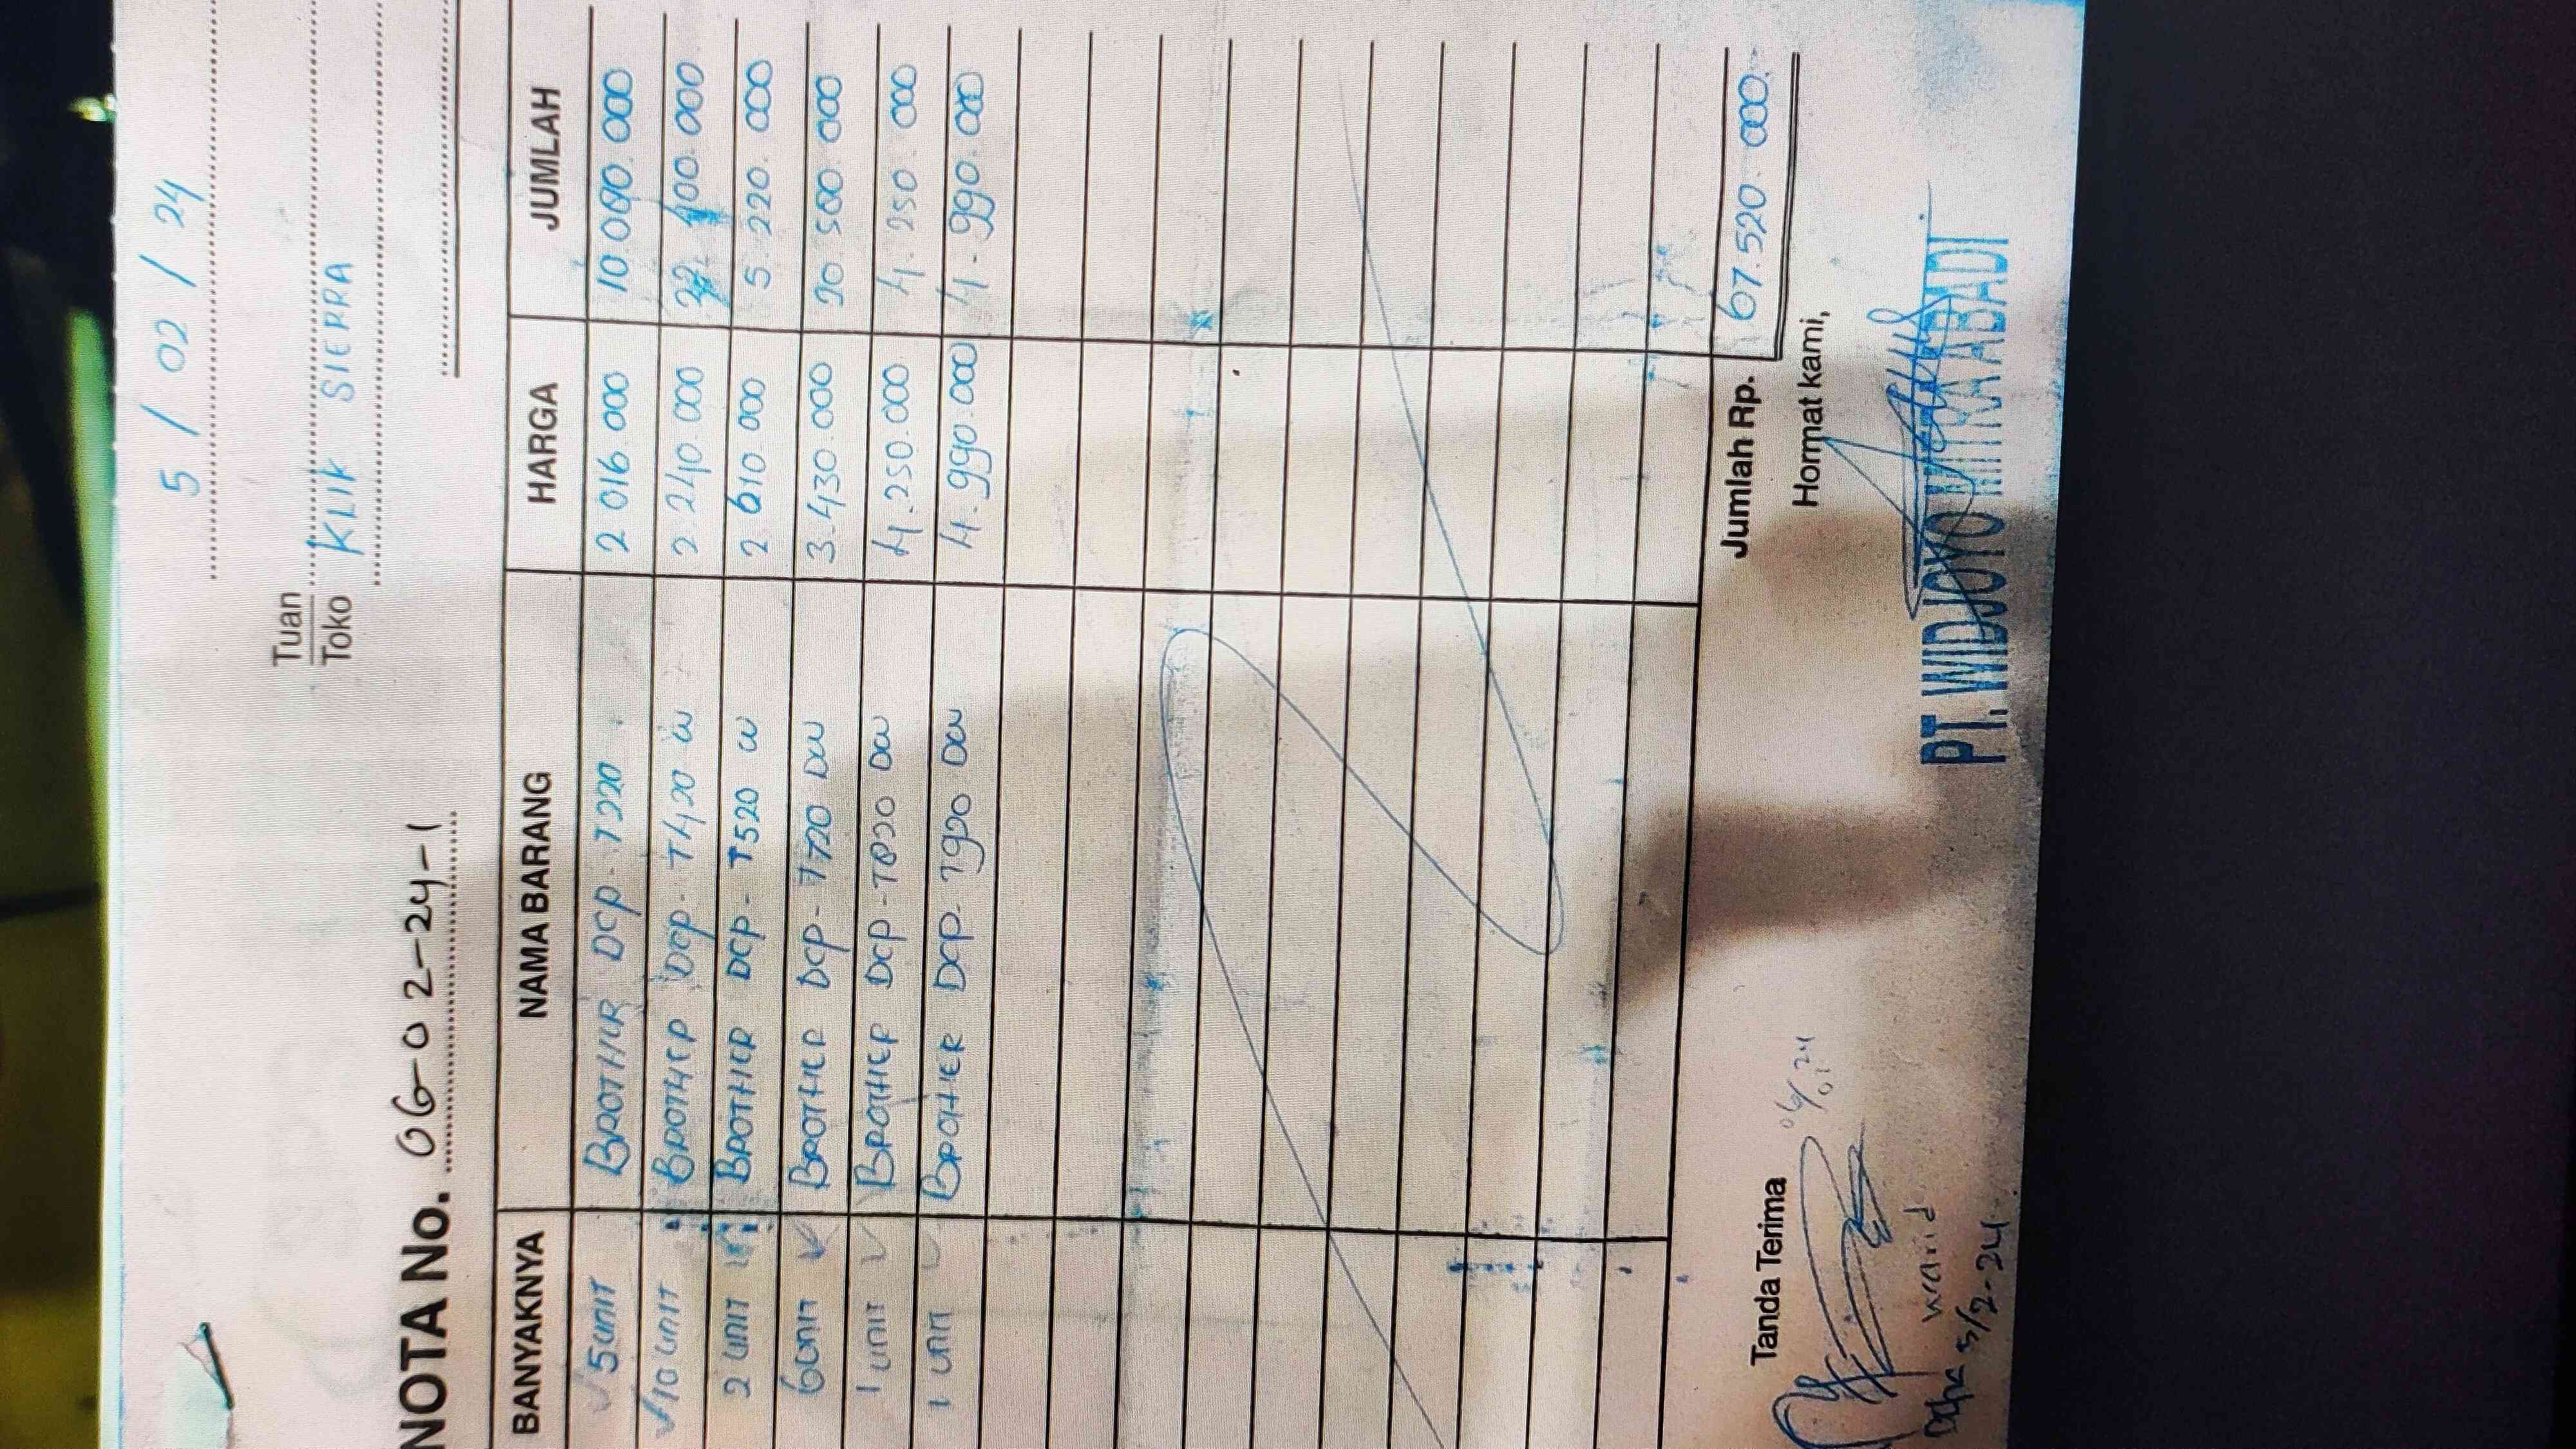 5 / 02 / 24
Tuan
Toko KLIK SIERRA
NOTA No. 06-02-24-1
BANYAKNYA NAMA BARANG HARGA JUMLAH
5 UNIT BROTHER DCP-T220 2 016 000 10.080.000
10 UNIT BROTHER DCP-T420 W 2.240.000 22.400.000
2 UNIT BROTHER DCP-T520 W 2 610 000 5.220.000
6 UNIT BROTHER DCP-T720 DW 3.430.000 20 580.000
1 UNIT BROTHER DCP-T820 DW 4.250.000 4.250 000
1 UNIT BROTHER DCP-T920 DW 4.990.000 4.990.000
Jumlah Rp. 67.520.000.-
Tanda Terima
Hormat kami,
warid
5/2-24
PT. WIDJOYO MITRA ABADI